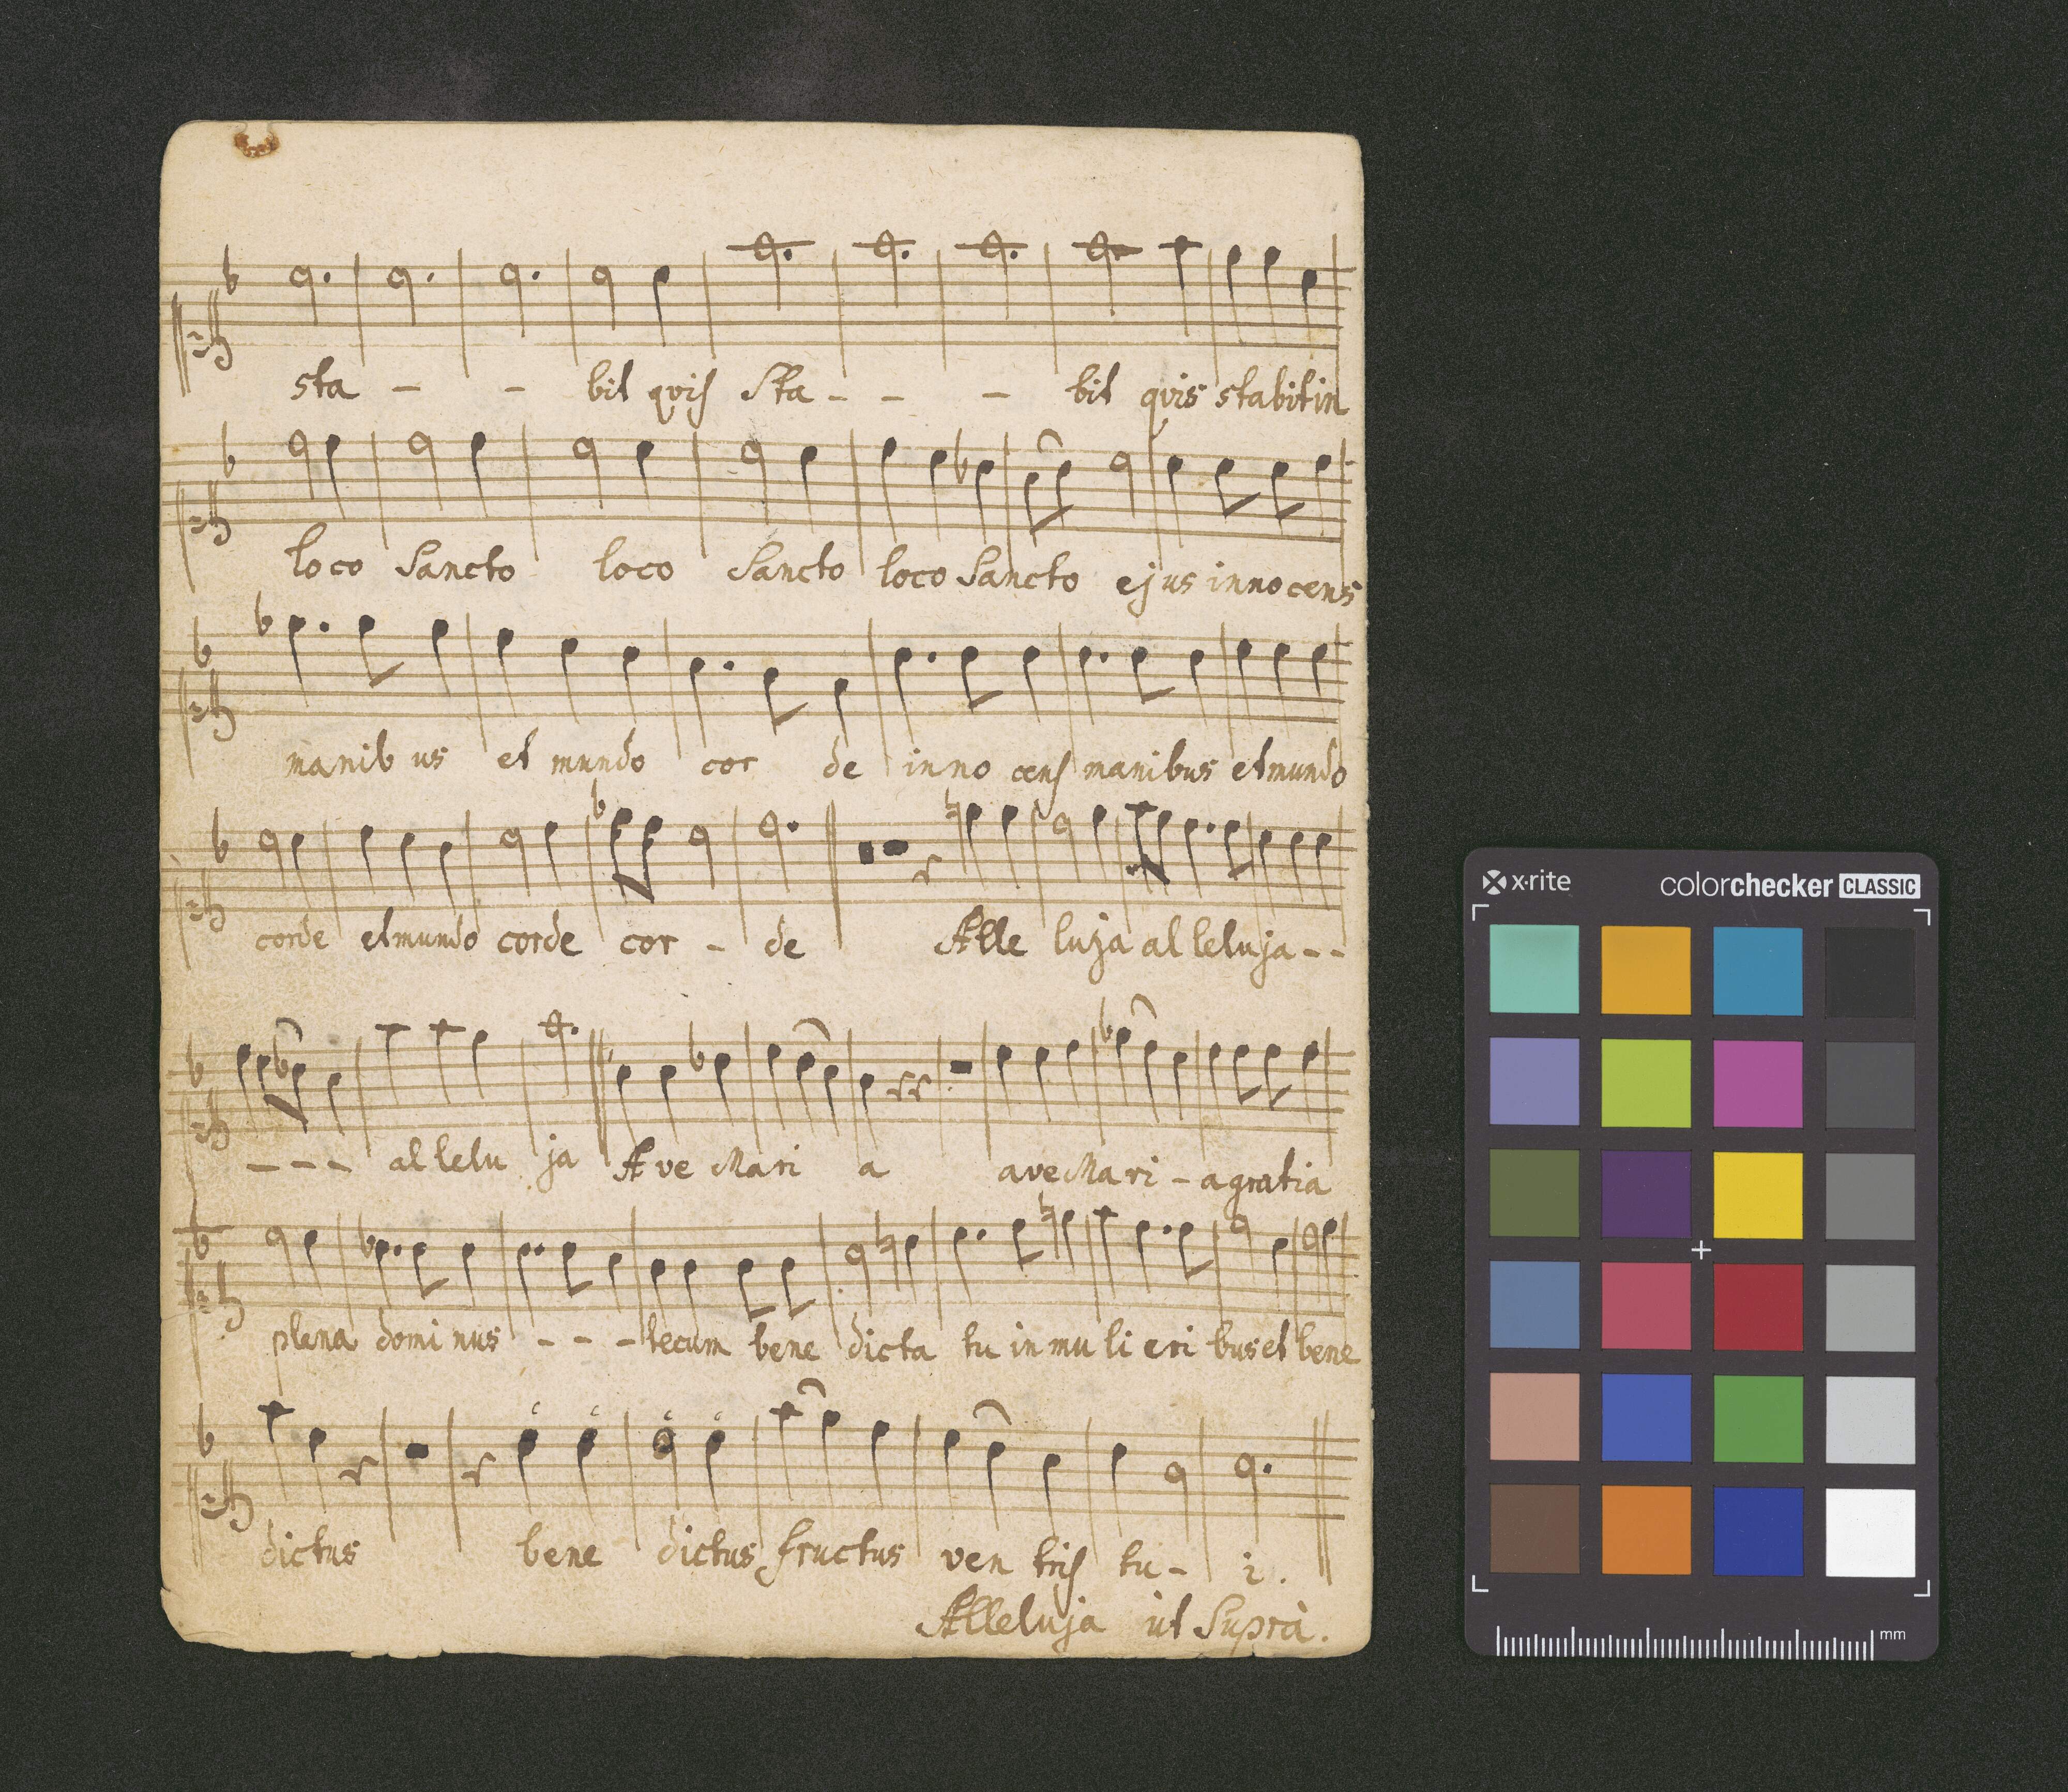 sta - - bit quis Sta - - - bit quis stabit in
loco Sancto loco Sancto loco Sancto ejus innocens
manib us et mundo cor de inno cens manibus et mundo
corde et mundo corde cor - de Alle luja al leluja - -
- - - al lelu ja Ave Mari a ave Mari - a gratia
plena domi nus - - - tecum bene dicta tu in mu li eri bus et bene
dictus bene dictus fructus ven tris tu - i.
Alleluja ut Suprà.
x·rite colorchecker CLASSIC
mm